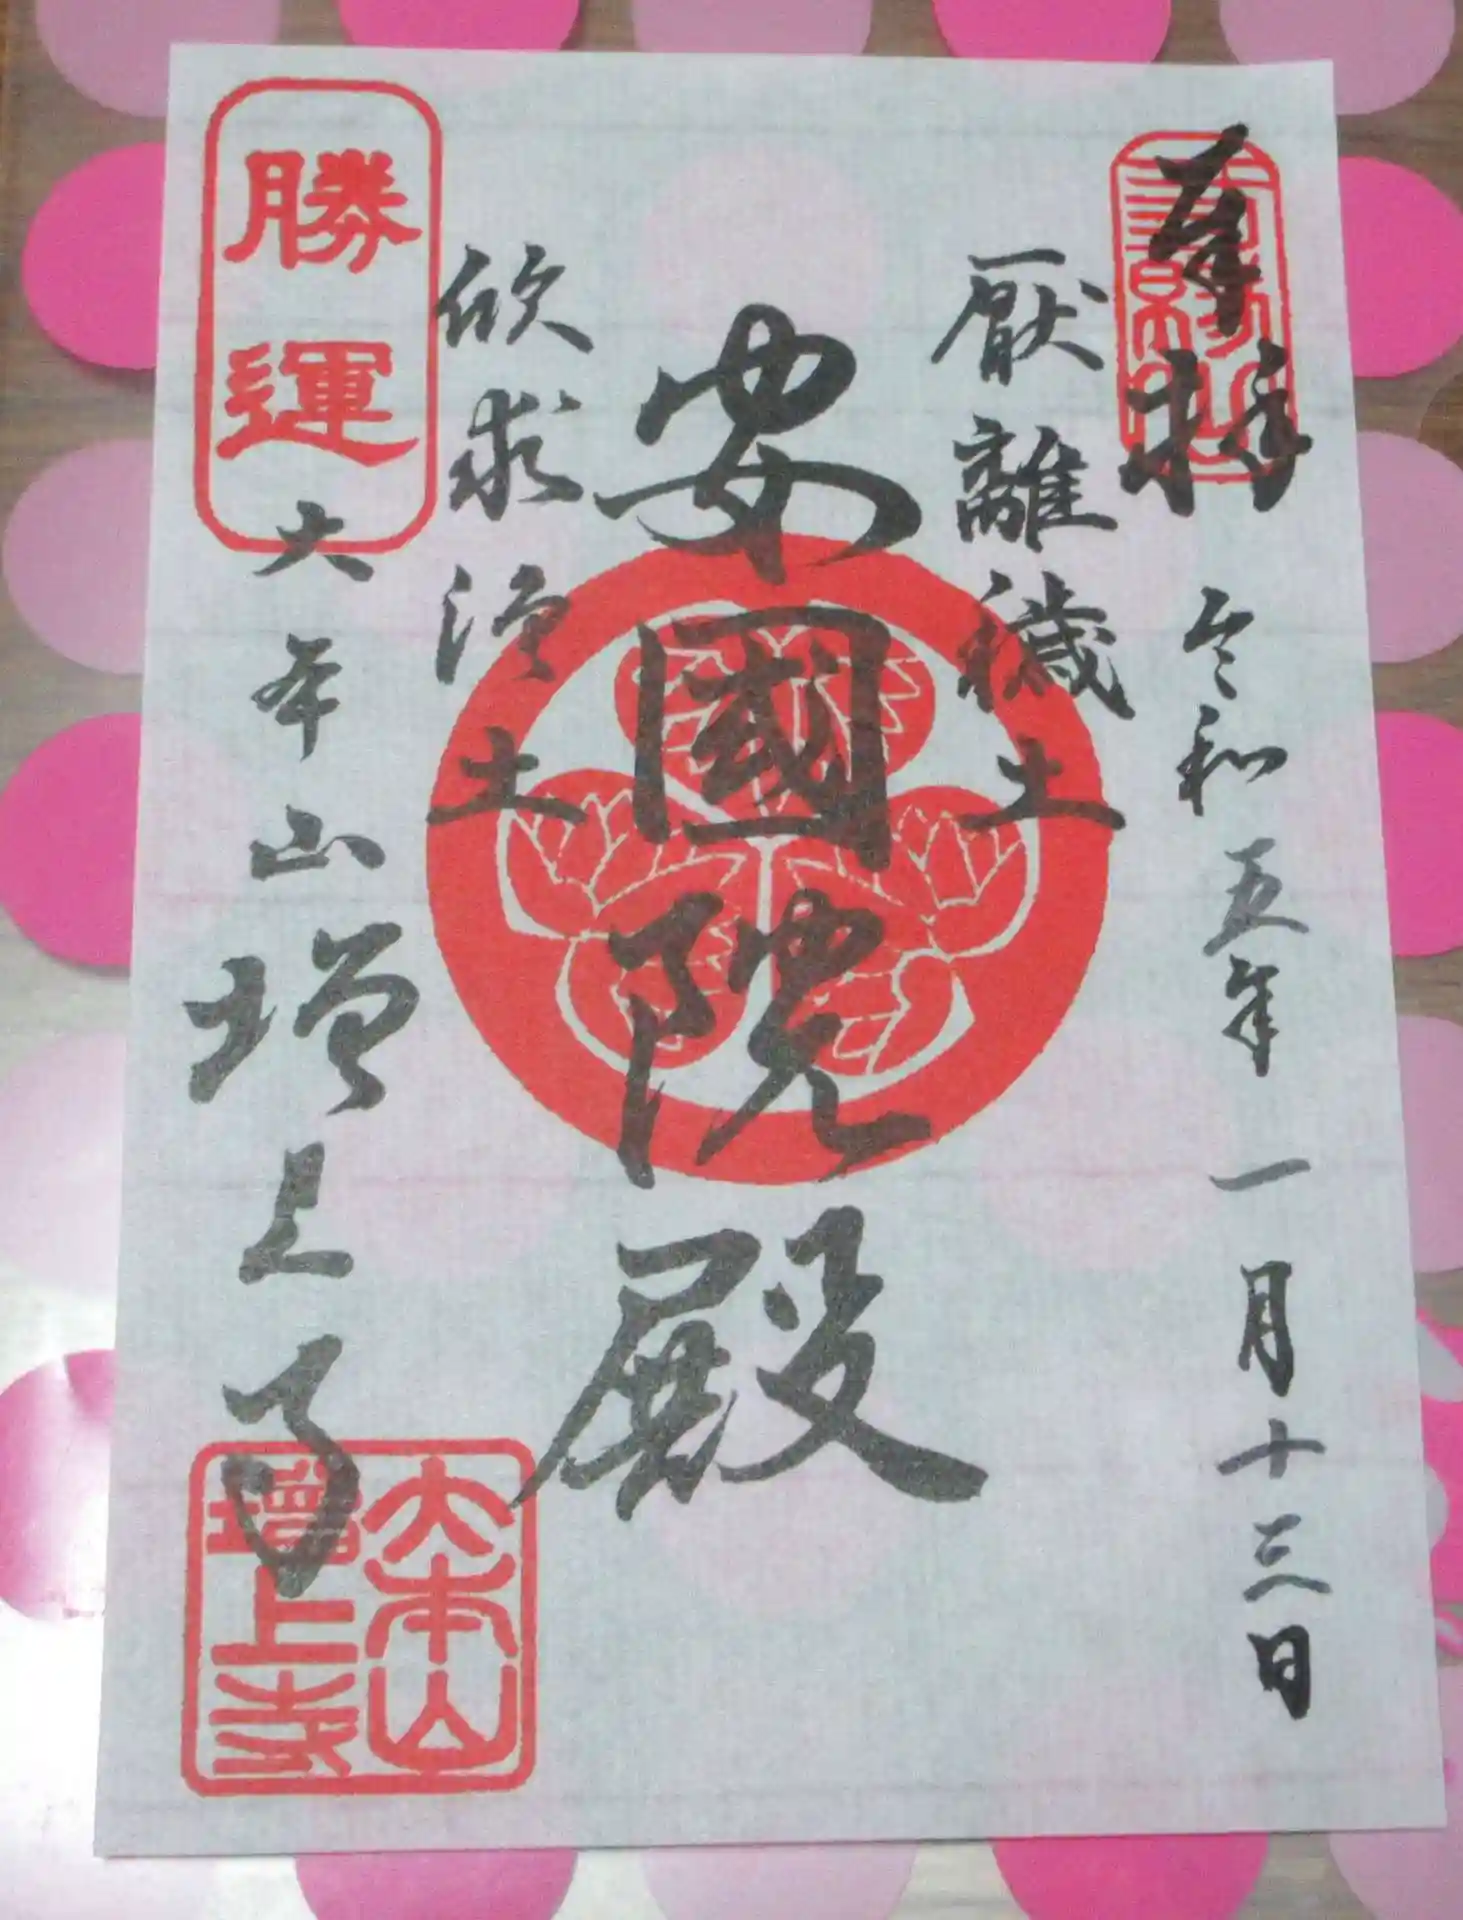 奉拝
令和五年一月十三日
厭離穢土
安國院殿
欣求淨土
勝運
大本山増上寺
大本山
増上寺